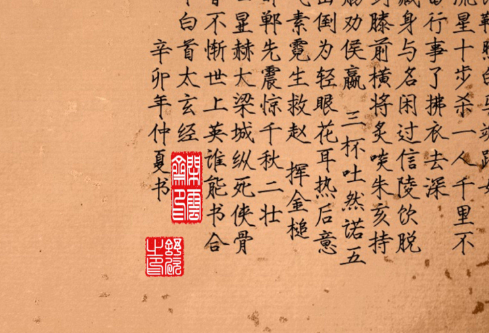 流星十步杀一人千里不
留行事了拂衣去深
藏身与名闲过信陵饮脱
膝前横将炙啖朱亥持
劝侯嬴 三杯吐然诺五
倒为轻眼花耳热后意
素霓生救赵 挥金槌
郸先震惊千秋二壮
赫大梁城纵死侠骨
不惭世上英谁能书合
白首太玄经
辛卯年仲夏书